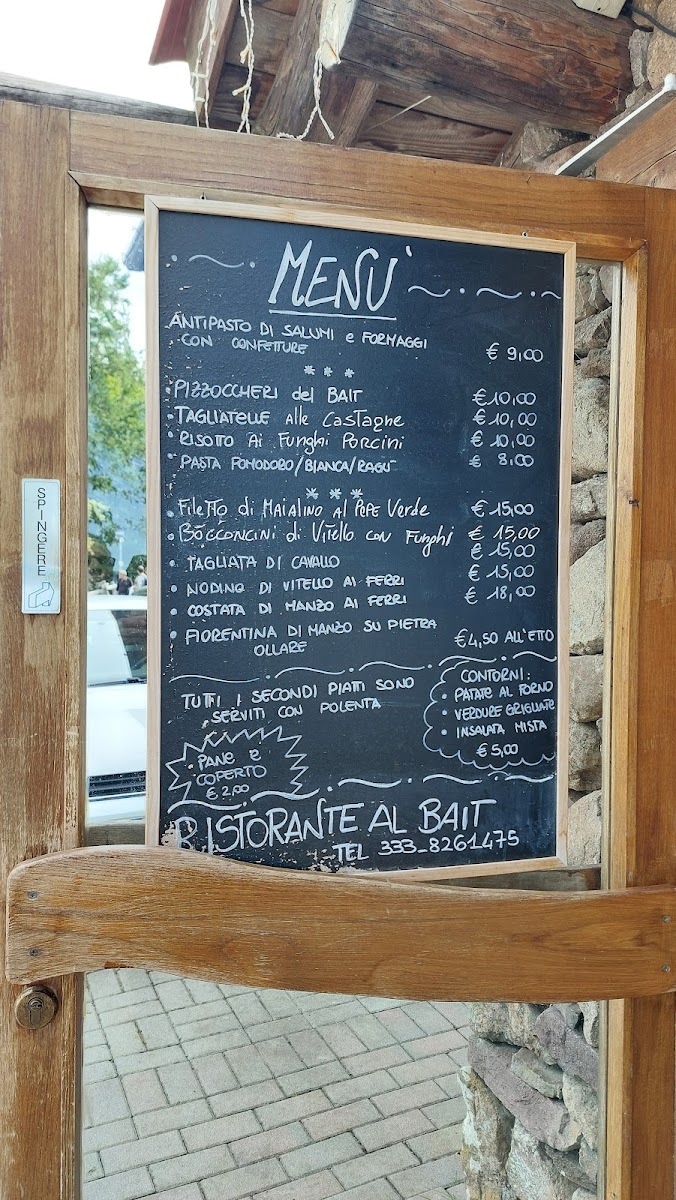 MENÙ
ANTIPASTO DI SALUMI e FORMAGGI
CON CONFETTURE € 9,00
* * *
• PIZZOCCHERI del BAIT € 10,00
• TAGLIATELLE alle CasTagne € 10,00
• RISOTTO Ai Funghi Porcini € 10,00
• PASTA POMODORO/BIANCA/RAGÙ € 8,00
* * *
• FileTTO di MAIALINO Al PEPE Verde € 15,00
• BOCCONCINI di ViTello con Funghi € 15,00
• TAGLIATA DI CAVALLO € 15,00
• NODINO DI VITELLO AI FERRI € 15,00
• COSTATA DI MANZO AI FERRI € 18,00
• FIORENTINA DI MANZO SU PIETRA
OLLARE € 4,50 ALL'ETTO
TUTTI I SECONDI PIATTI SONO
SERVITI CON POLENTA
CONTORNI:
• PATATE AL FORNO
• VERDURE GRIGLIATE
• INSALATA MISTA
€ 5,00
• PANE e
COPERTO
€ 2,00
RISTORANTE AL BAIT
TEL 333-8261475
SPINGERE